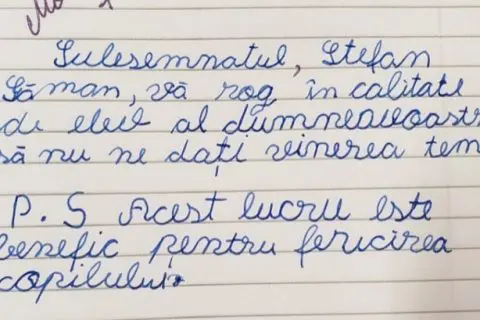 Mo
Sulesemnatul, Ștefan
Săman, vă rog în calitate
de elev al dumneavoastr
să nu ne dați vinerea tem
P.S Acest lucru este
benefic pentru fericirea
copilului.